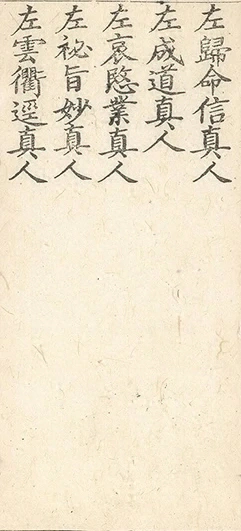 左歸命信真人
左成道真人
左哀愍業真人
左祕旨妙真人
左雲衢逕真人